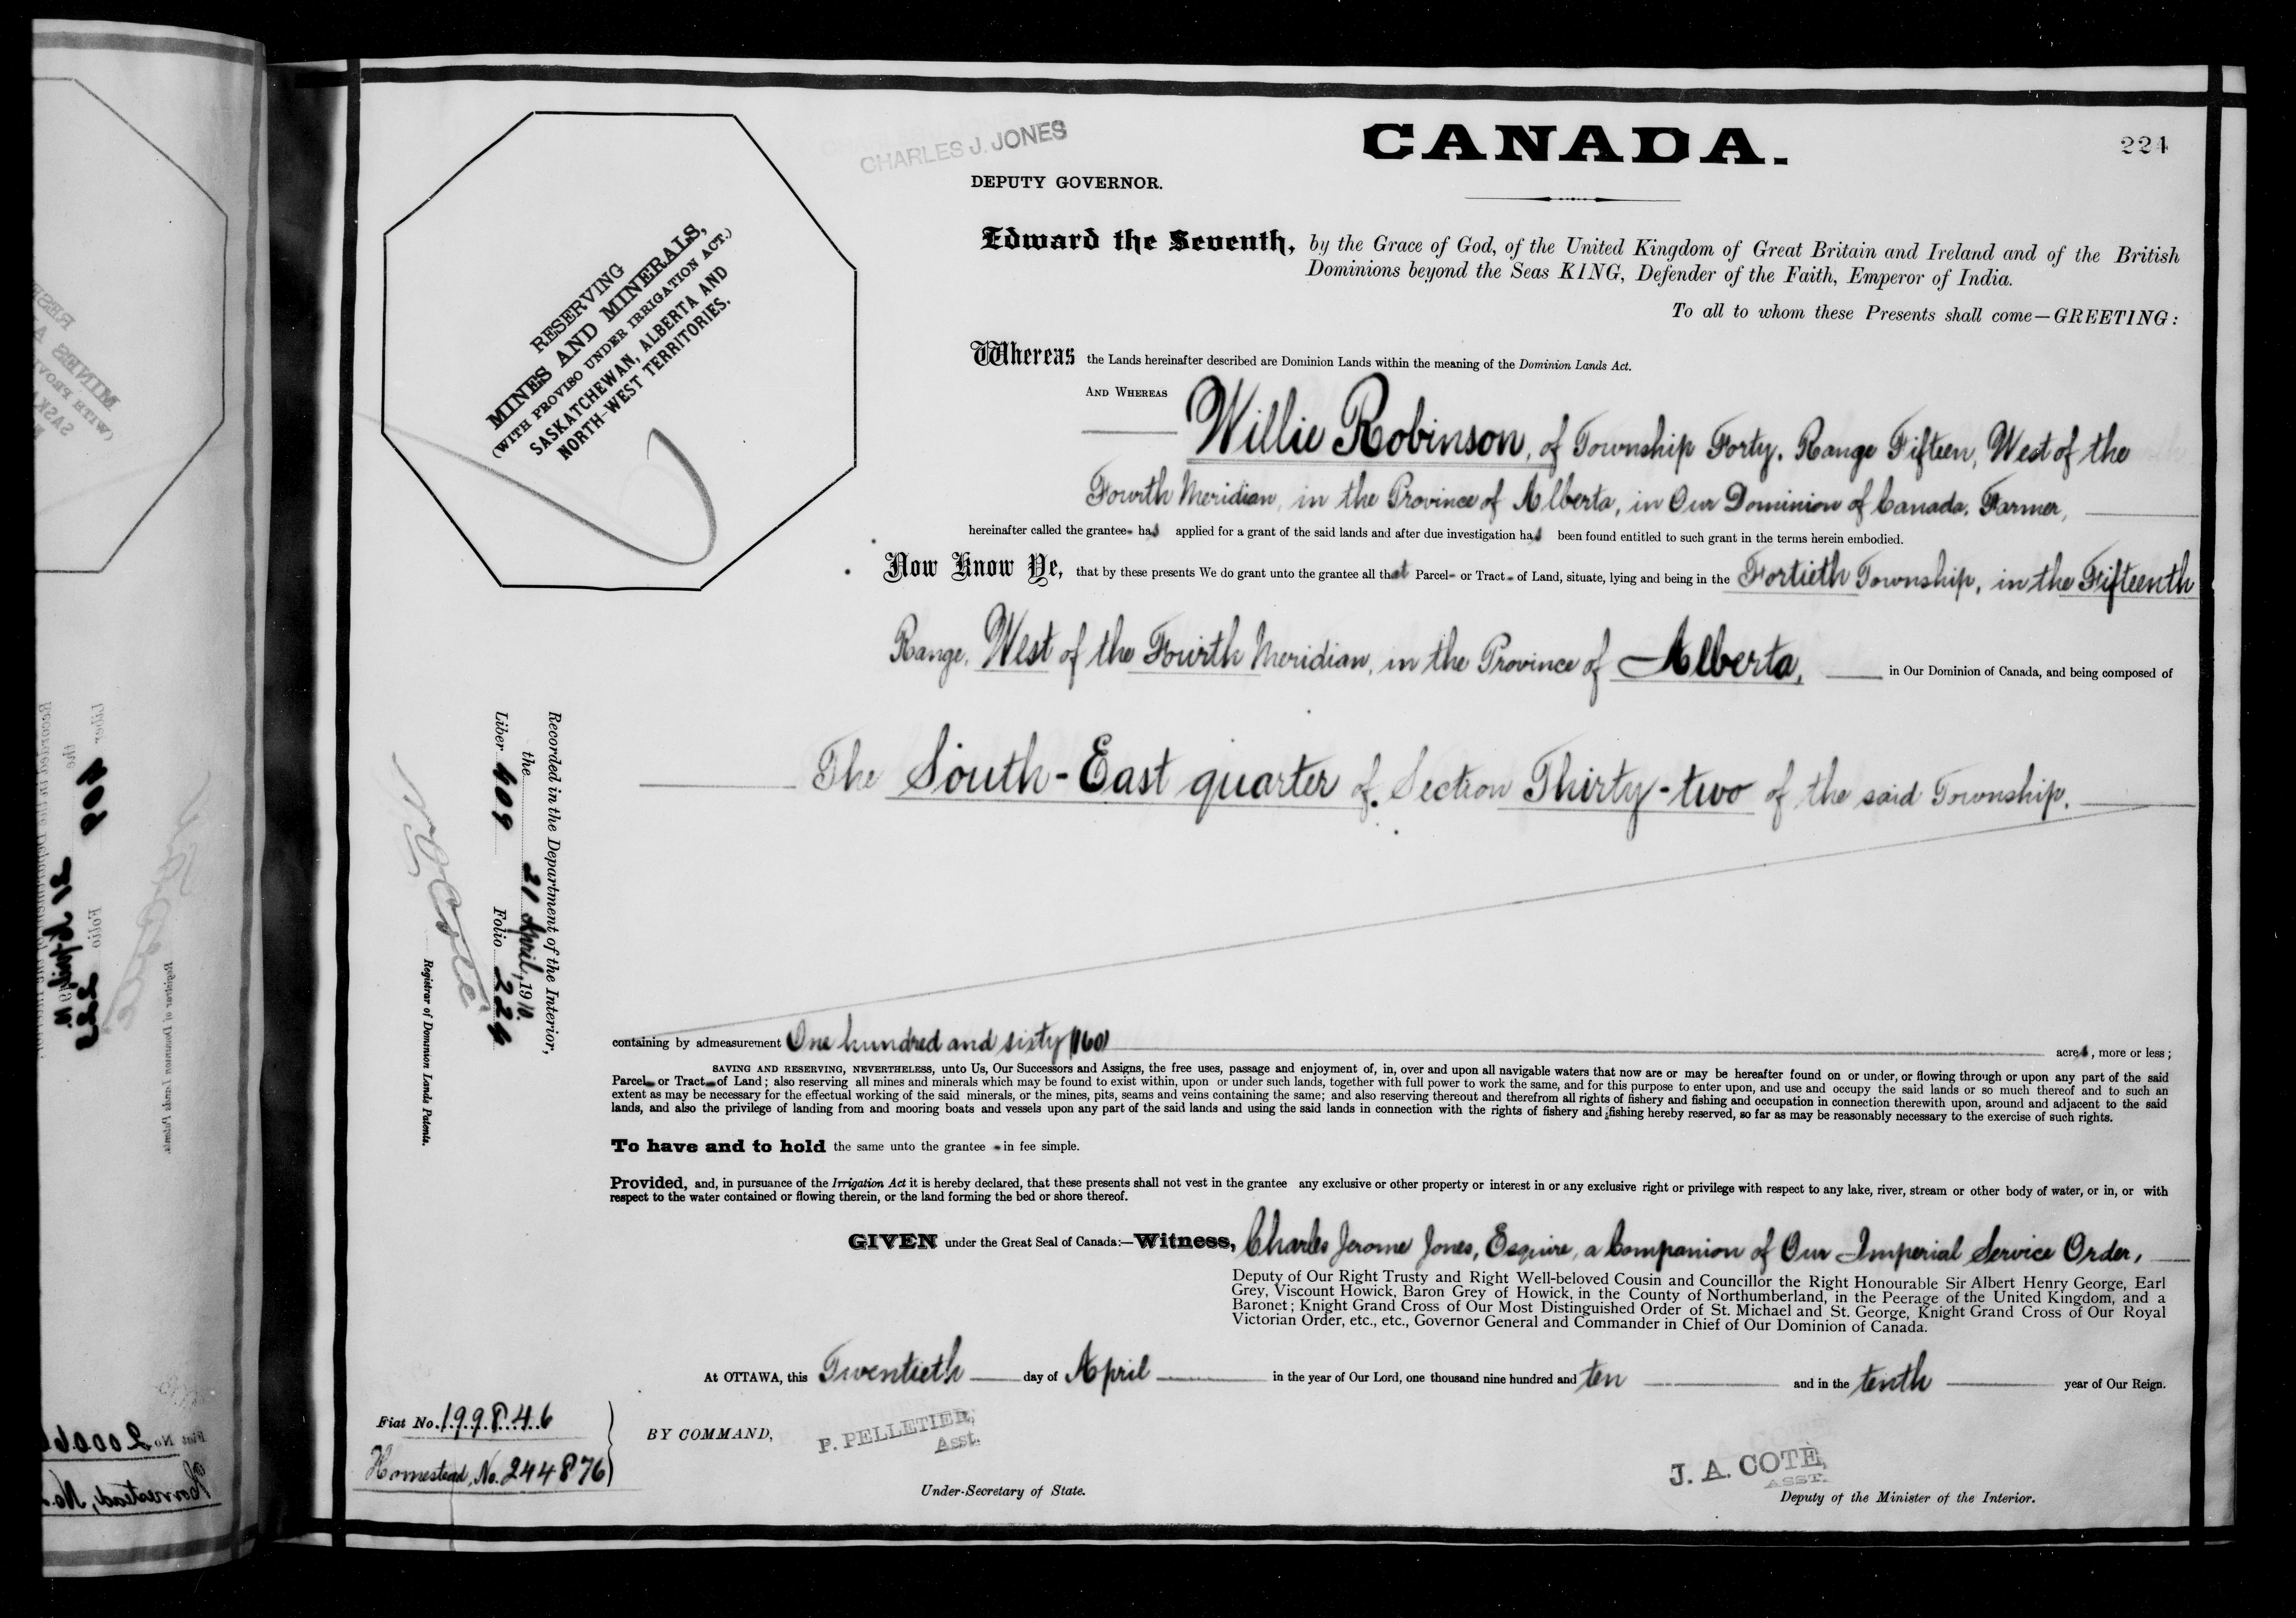 CHARLES J. JONES
CANADA.
224
DEPUTY GOVERNOR.
Edward the Seventh, by the Grace of God, of the United Kingdom of Great Britain and Ireland and of the British
Dominions beyond the Seas KING, Defender of the Faith, Emperor of India.
To all to whom these Presents shall come—GREETING:
RESERVING
MINES AND MINERALS,
(WITH PROVISO UNDER IRRIGATION ACT.)
SASKATCHEWAN, ALBERTA AND
NORTH-WEST TERRITORIES.
Whereas the Lands hereinafter described are Dominion Lands within the meaning of the Dominion Lands Act.
AND WHEREAS
Willie Robinson, of Township Forty, Range Fifteen, West of the
Fourth Meridian, in the Province of Alberta, in Our Dominion of Canada, Farmer,
hereinafter called the grantee has applied for a grant of the said lands and after due investigation has been found entitled to such grant in the terms herein embodied.
Now Know Ye, that by these presents We do grant unto the grantee all that Parcel or Tract of Land, situate, lying and being in the Fortieth Township, in the Fifteenth
Range, West of the Fourth Meridian, in the Province of Alberta, in Our Dominion of Canada, and being composed of
The South-East quarter of Section Thirty-two of the said Township.
Recorded in the Department of the Interior,
the 21 April, 1910.
Liber 409 Folio 224
N. O. Coté
Registrar of Dominion Lands Patents.
containing by admeasurement One hundred and sixty (160) acres, more or less;
SAVING AND RESERVING, NEVERTHELESS, unto Us, Our Successors and Assigns, the free uses, passage and enjoyment of, in, over and upon all navigable waters that now are or may be hereafter found on or under, or flowing through or upon any part of the said
Parcel or Tract of Land; also reserving all mines and minerals which may be found to exist within, upon or under such lands, together with full power to work the same, and for this purpose to enter upon, and use and occupy the said lands or so much thereof and to such an
extent as may be necessary for the effectual working of the said minerals, or the mines, pits, seams and veins containing the same; and also reserving thereout and therefrom all rights of fishery and fishing and occupation in connection therewith upon, around and adjacent to the said
lands, and also the privilege of landing from and mooring boats and vessels upon any part of the said lands and using the said lands in connection with the rights of fishery and fishing hereby reserved, so far as may be reasonably necessary to the exercise of such rights.
To have and to hold the same unto the grantee in fee simple.
Provided, and, in pursuance of the Irrigation Act it is hereby declared, that these presents shall not vest in the grantee any exclusive or other property or interest in or any exclusive right or privilege with respect to any lake, river, stream or other body of water, or in, or with
respect to the water contained or flowing therein, or the land forming the bed or shore thereof.
GIVEN under the Great Seal of Canada:—Witness, Charles Jerome Jones, Esquire, a Companion of Our Imperial Service Order,
Deputy of Our Right Trusty and Right Well-beloved Cousin and Councillor the Right Honourable Sir Albert Henry George, Earl
Grey, Viscount Howick, Baron Grey of Howick, in the County of Northumberland, in the Peerage of the United Kingdom, and a
Baronet; Knight Grand Cross of Our Most Distinguished Order of St. Michael and St. George, Knight Grand Cross of Our Royal
Victorian Order, etc., etc., Governor General and Commander in Chief of Our Dominion of Canada.
At OTTAWA, this Twentieth day of April in the year of Our Lord, one thousand nine hundred and ten and in the tenth year of Our Reign.
Fiat No. 199846
Homestead, No. 244876
BY COMMAND,
P. PELLETIER,
Asst.
Under-Secretary of State.
J. A. COTE,
ASST.
Deputy of the Minister of the Interior.